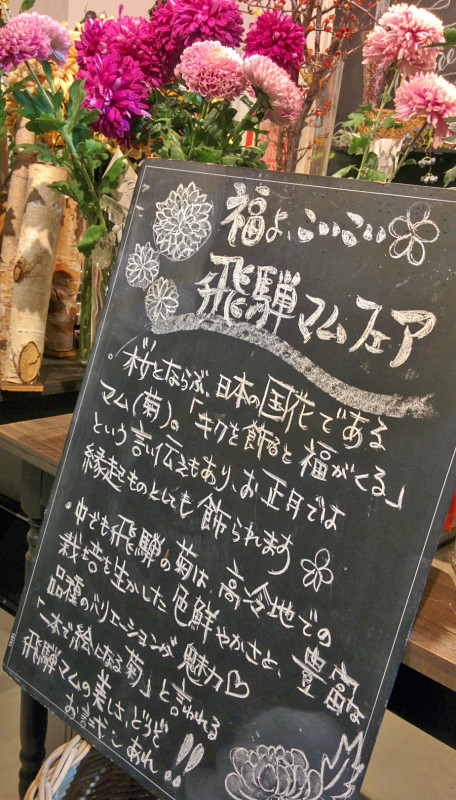 福よ、こいこい
飛騨マムフェア
・桜とならぶ、日本の国花である
マム(菊)。「キクを飾ると福がくる」
という言い伝えもあり、お正月では
縁起ものとしても飾られます
・中でも飛騨の菊は高冷地での
栽培を生かした色鮮やかさと、豊富な
品種のバリエーションが魅力♡
「一本で絵になる菊」と言われる
飛騨マムの美しさ、どうぞ
お試しあれ‼